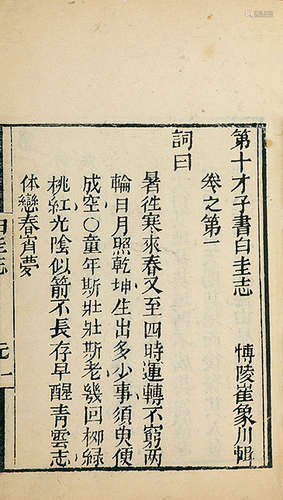 第十才子書白圭志 愽陵崔象川輯
卷之第一
詞曰
暑徃寒來春又至四時運轉不窮两
輪日月照乾坤生出多少事須臾便
成空〇童年斯壯壯斯老幾回栁緑
桃紅光陰似箭不長存早醒青雲志
体戀春宵夢